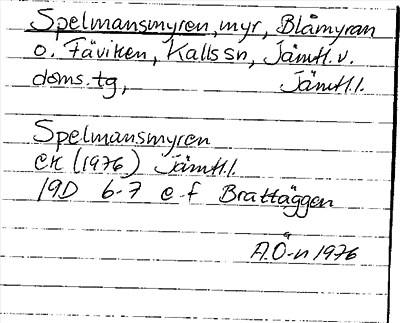 Spelmansmyren, myr, Blåmyran
o. Fäviken, Kalls sn, Jämtl. v.
doms. tg, Jämtl. l.
Spelmansmyren
EK (1976) Jämtl. l.
19D 6-7 e-f Brattäggen
A.Ö-n 1976